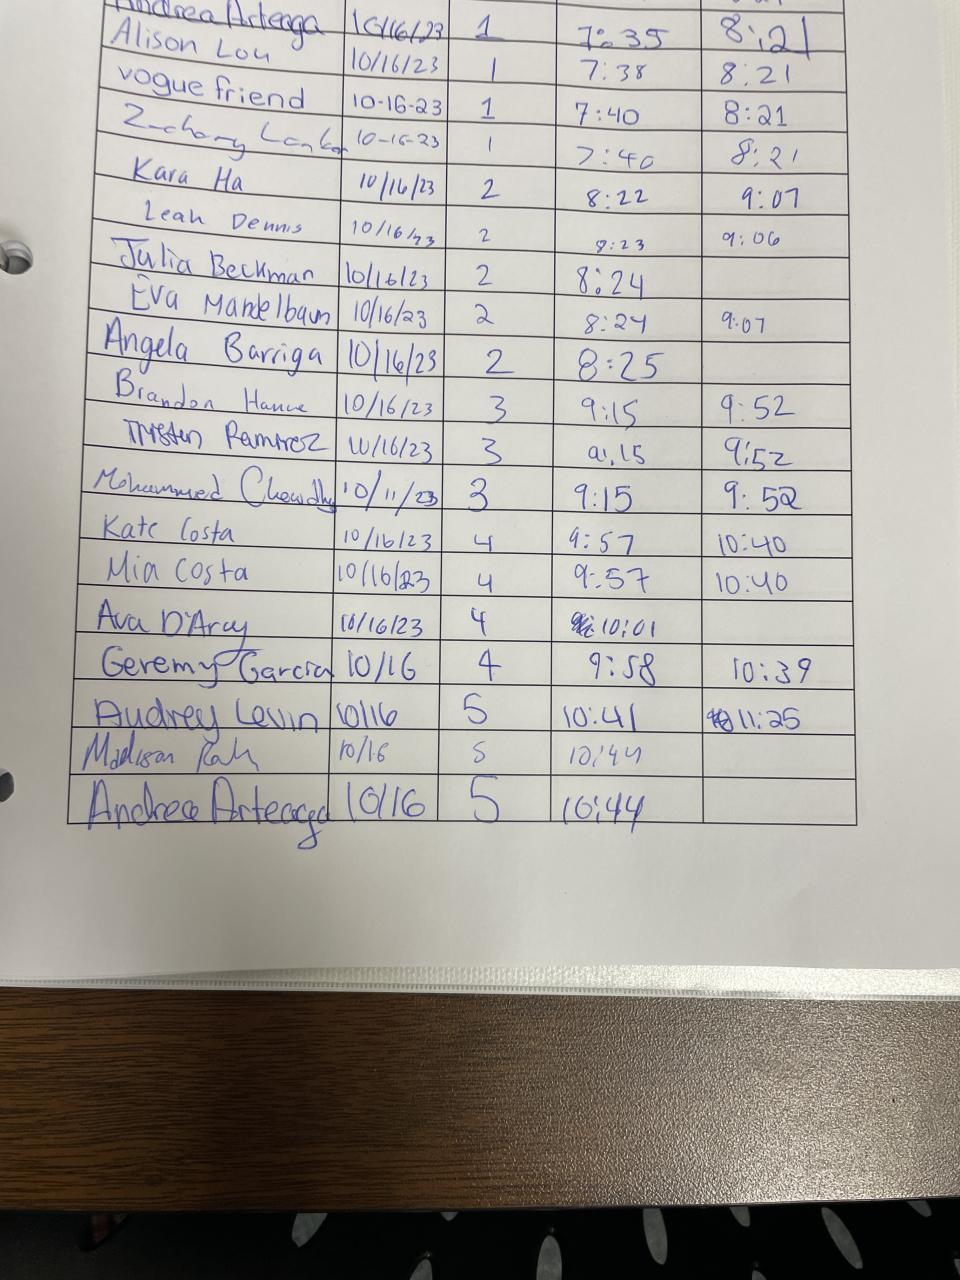 Andrea Arteaga 10/16/23 1 7:35 8:21
Alison Lou 10/16/23 1 7:38 8:21
vogue friend 10-16-23 1 7:40 8:21
Zachary 10-16-23 1 7:40 8:21
Kara Ha 10/16/23 2 8:22 9:07
Leah Dennis 10/16/23 2 8:23 9:06
Julia Beckman 10/16/23 2 8:24
Eva Mandelbaum 10/16/23 2 8:24 9:07
Angela Barriga 10/16/23 2 8:25
Brandon 10/16/23 3 9:15 9:52
Tristen Ramirez 10/16/23 3 9:15 9:52
Mohammed 10/11/23 3 9:15 9:52
Kate Costa 10/16/23 4 9:57 10:40
Mia Costa 10/16/23 4 9:57 10:40
Ava D'Arcy 10/16/23 4 10:01
Geremy Garcia 10/16 4 9:58 10:39
Audrey Levin 10/16 5 10:41 11:25
Madison 10/16 5 10:44
Andrea Arteaga 10/16 5 10:44